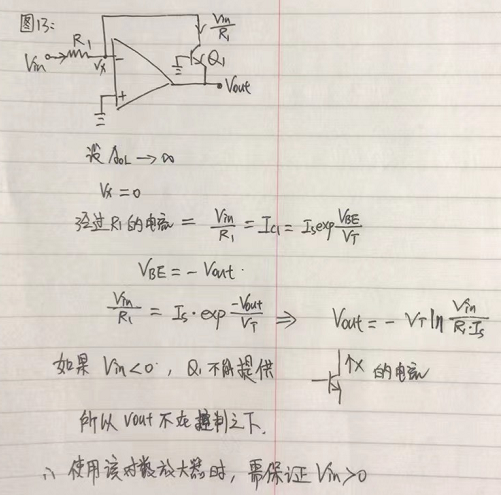 图13:
Vin R1 Vx - + Vin/R1 Q1 Vout
设 AOL → ∞
Vx = 0
经过R1的电流 = Vin/R1 = IC1 = Is exp VBE/VT
VBE = - Vout.
Vin/R1 = Is · exp -Vout/VT ⇒ Vout = - VT ln Vin/R1·Is
如果 Vin < 0, Q1 不能提供 ↑X 的电流
所以 Vout 不在控制之下.
∴ 使用该对数放大器时, 需保证 Vin > 0